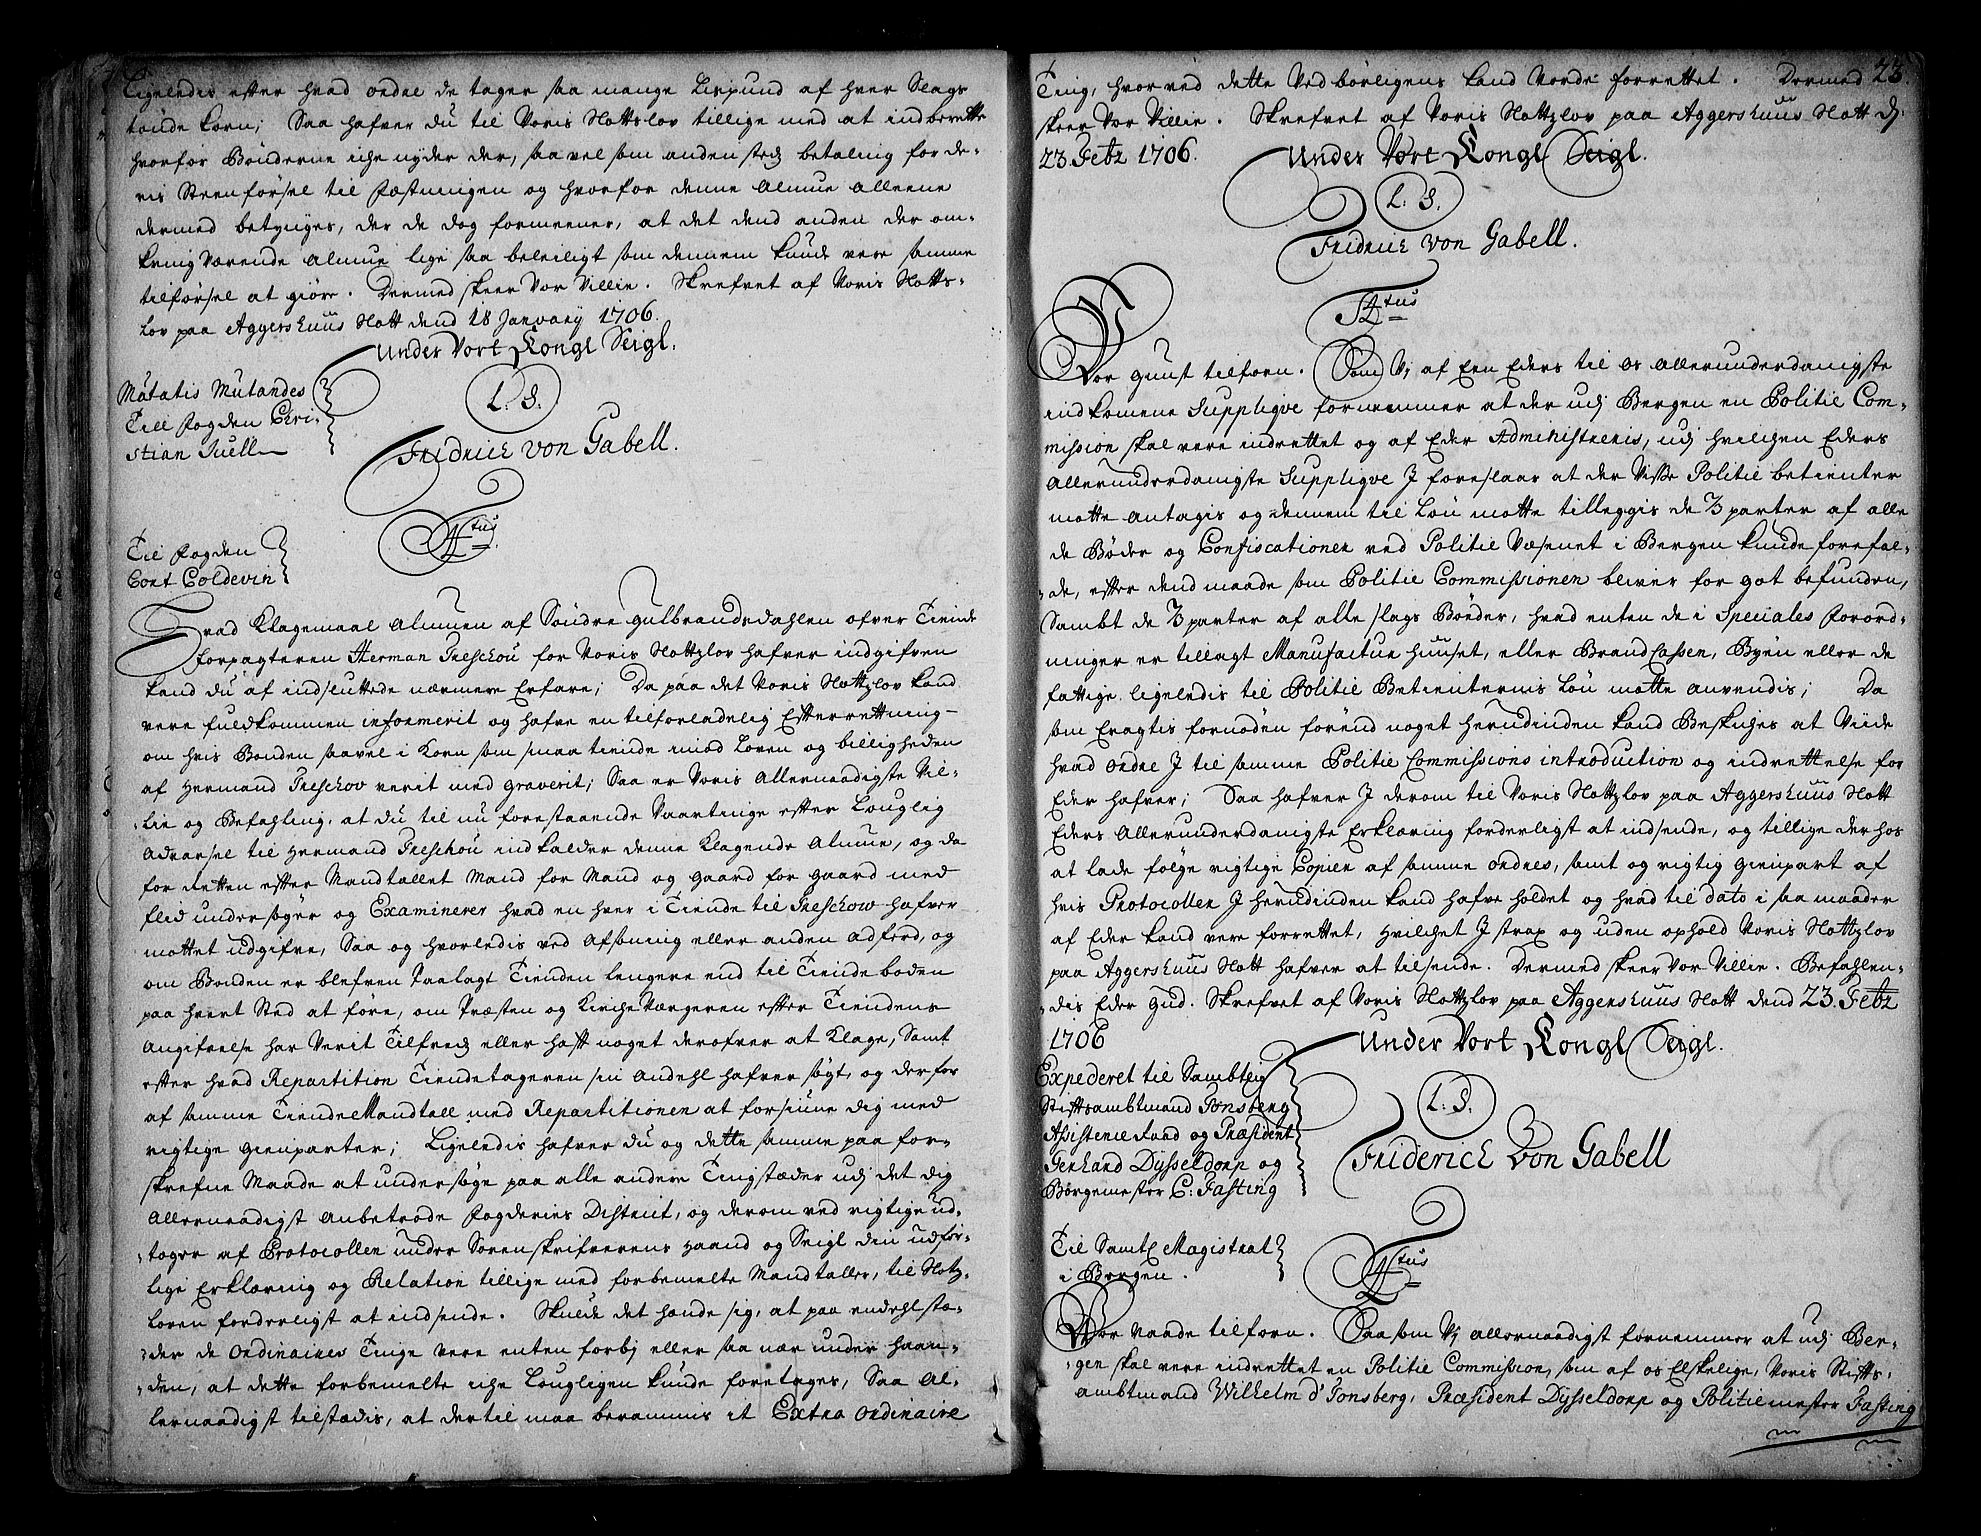 Ligeledis efter hvad ordre de tager saa mange Lispund af hver Slags
tönde Korn; Saa hafver du til Voris Slottslov tillige med at indberette
hvorfor Bönderne iche nyder der, saa vel som anden sted betaling for de-
ris Steenförsel til Fæstningen og hvorfor denne Almue alleene
dermed betynges, der de dog formeener, at det dend anden der om-
kring Værende Almue lige saa beleiligt som dennem kunde vere samme
tilförsel at giöre. Dermed skeer Vor Villie. Skrefvet af Voris Slotts-
Lov paa Aggershuus Slott dend 18 January 1706.
Under Vort Kongl Seigl.
Mutatis Mutandes
Till Fogden Chri-
stian Juell
L. S.
Fridrich von Gabell.
Til Fogden
Cort Coldevin
A tus
Hvad Klagemaal Almuen af Söndre Gulbrandsdahlen ofver Tiende
forpagteren Herman Treschou for Voris Slottzlov hafver indgifven
kand du af indsluttede nærmere Erfare; Da paa det Voris Slottzlov kand
vere fuldkommen informerit og hafve en tilforladelig Efterretning
om hvis Bonden saavel i Korn som smaa tiende imod Loven og billigheden
af Hermand Treschov verit med graverit; Saa er Voris Allernaadigste Vil-
lie og Befahling, at du til nu forestaaende Vaartinge efter Louglig
Advarsel til Hermand Treschou indkalder denne Klagende Almue, og da
for Retten efter Mandtallet Mand for Mand og gaard for gaard med
flid undersøger og Examinerer hvad en hver i Tiende til Treschow hafver
mottet udgifve, Saa og hvorledis ved Afsoning eller anden adferd, og
om Bonden er blefven Paalagt Tienden lengere end til Tiende boden
paa hvert Sted at före, om Præsten og KircheVærgeren efter Tiendens
Angifvelse har Verit Tilfreds eller haft noget derofver at Klage, Samt
efter hvad Repartition Tiendetageren sin Andehl hafver søgt, og derfor
af samme TiendeMandtall med Repartitionen at forsiune dig med
rigtige gienparter; Ligeledis hafver du og dette samme paa for-
skrefne Maade at undersøge paa alle andere Tingstæder udj det dig
Allernaadigst Anbetrode Fogderies District, og derom ved rigtige ud-
toger af Protocollen under Sorenskrifverens Haand og Seigl din udför-
lige Erklæring og Relation tillige med forbemelte Mandtaller, til Slotz-
loven forderligst at indsende. Skulde det hænde sig, at paa endehl stæ-
der de Ordinaires Tinge vere enten forbj eller saa nær under haan-
den, at dette forbemelte iche Lougligen kunde foretages, Saa Al-
lernaadigst tilstædis, at dertil maa berammis it Extra Ordinaire
23.
Ting, hvorved dette Ved börligens kand Vorde forrettet. Dermed
skeer Vor Villie. Skrefvet af Voris Slottzlov paa Aggershuus Slott d:
23 Febr 1706.
Under Vort Kongl Seigl.
L. S.
Fridrich von Gabell.
A tus
Vor gunst tilforn. Som Vj af Een Eders til Os Allerunderdanigste
indkomene Suppliqve fornemmer at der udj Bergen en Politie Com-
mission skal vere indrettet og af Eder Administreris, udj hvilchen Eders
Allerunderdanigste Suppliqve I foreslaar at der Visse Politie betienter
motte antagis og dennem til Lön motte tilleggis de ⅔ parter af alle
de Bøder og Confiscationer ved Politie Væsenet i Bergen kunde forefal-
de, efter dend maade som Politie Commissionen blever for got befunden,
Sambt de ⅔ parter af alle slags Bøeder, hvad enten de i Speciales Forord-
ninger er tillagt Manufactur huuset, eller BrandCassen, Byen eller de
fattige ligeledis til Politie Betienternis Lön motte anvendis; Da
som Eragtis fornöden forend noget herudinden kand Beskiches at Viide
hvad ordre J til samme Politie Commissions introduction og indrettelse for
Eder hafver; Saa hafver J derom til Voris Slottzlov paa Aggershuus Slott
Eders Allerunderdanigste Erklæring forderligst at indsende, og tillige der hos
at lade følge rigtige Copier af samme ordres, samt og rigtig gienpart af
hvis Protocoller J herudinden kand hafve holdet og hvad til dato i saa maader
af Eder kand vere forrettet, hvilchet J strax og uden ophold Voris Slottzlov
paa Aggershuus Slott hafver at tilsende. Dermed skeer Vor Villie. Befahlen-
dis Eder Gud. Skrefvet af Voris Slottzlov paa Aggershuus Slott dend 23. Febr
1706
Under Vort Kongl Seigl.
Expederet til Sambtlig
Stiftsambtmand Tonsberg
Assistence Raad og Præsident
Gerhard Dÿsseldorp og
Borgemester C: Fasting
L. S.
Friderich von Gabell
Til Samtl Magistrat
i Bergen.
A tus
Vor Naade tilforn. Saasom Vj allernaadigst fornemmer at udj Ber-
gen skal vere indrettet en Politie Commission, som af os Elskelige, Voris Stifts-
ambtmand Wilhelm d' Tonsberg, Præsident Dÿsseldorp og Politiemester Fasting